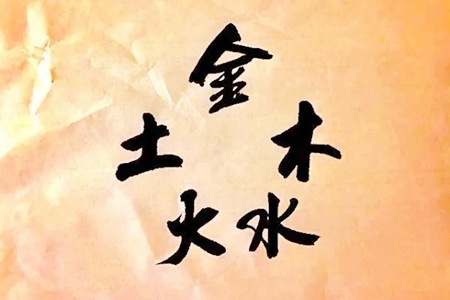 金
土 木
火 水